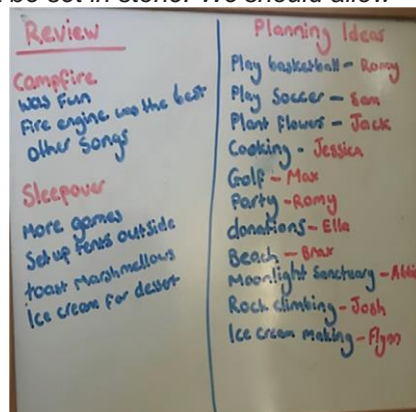 be set in stone. We should allow
Review
Campfire
was Fun
Fire engine was the best
other Songs
Sleepover
More games
Set up tents outside
toast Marshmellows
Ice cream for dessert
Planning Ideas
Play basketball - Romy
Play Soccer - Sam
Plant flowers - Jack
Cooking - Jessica
Golf - Max
Party - Romy
donations - Ella
Beach - Brax
Moonlight Sanctuary - Abbi
Rock climbing - Josh
Ice cream making - Flynn